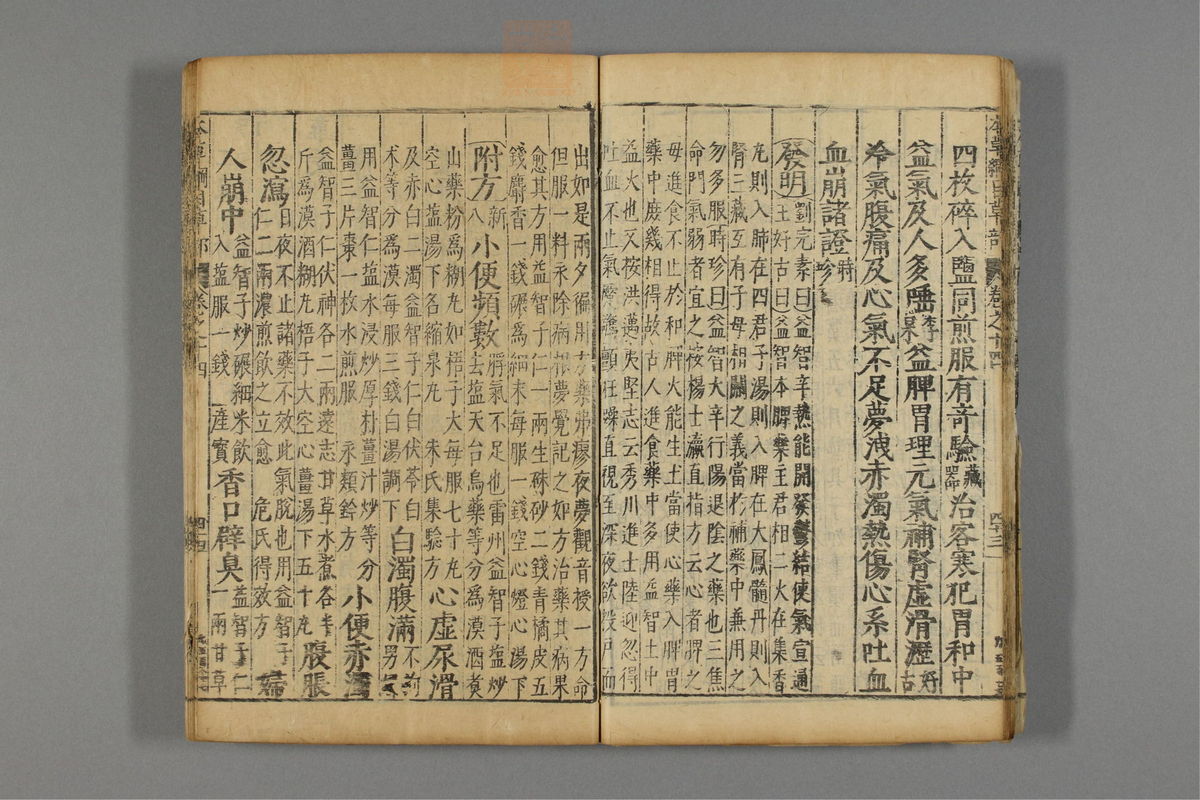 四枚碎入鹽同煎服有奇驗藏器治客寒犯胃和中
益氣及人多唾李杲益脾胃理元氣補腎虛滑瀝好古
冷氣腹痛及心氣不足夢洩赤濁熱傷心系吐血
血崩諸證時珍
發明劉完素曰益智辛熱能開發鬱結使氣宣通
王好古曰益智本脾藥主君相二火在集香
丸則入肺在四君子湯則入脾在大鳳髓丹則入
腎三藏互有子母相關之義當於補藥中兼用之
勿多服時珍曰益智大辛行陽退陰之藥也三焦
命門氣弱者宜之按楊士瀛直指方云心者脾之
母進食不止於和脾火能生土當使心藥入脾胃
藥中庶幾相得故古人進食藥中多用益智土中
益火也又按洪邁夷堅志云秀川進士陸迎忽得
吐血不止氣蹙驚顫狂躁直視至深夜欲投戶而
出如是兩夕徧用方藥弗瘳夜夢觀音授一方命
但服一料永除病根夢覺記之如方治藥其病果
愈其方用益智子仁一兩生硃砂二錢青橘皮五
錢麝香一錢碾爲細末每服一錢空心燈心湯下
附方新八小便頻數脬氣不足也雷州益智子塩炒
去塩天台烏藥等分爲末酒煮
山藥粉爲糊丸如梧子大每服七十丸
空心塩湯下名縮泉丸 朱氏集驗方心虛尿滑
及赤白二濁益智子仁白伏苓白
术等分爲末每服三錢白湯調下白濁腹滿不拘
男婦
用益智仁塩水浸炒厚朴薑汁炒等分
薑三片棗一枚水煎服 永類鈐方小便赤濁
益智子仁伏神各二兩遠志甘草水煮各半
斤爲末酒糊丸梧子大空心薑湯下五十丸腹脹
忽瀉日夜不止諸藥不效此氣脫也用益智子
仁二兩濃煎飲之立愈 危氏得效方婦
人崩中益智子炒碾細米飲
入塩服一錢 産寶香口辟臭益智子仁
一兩甘草